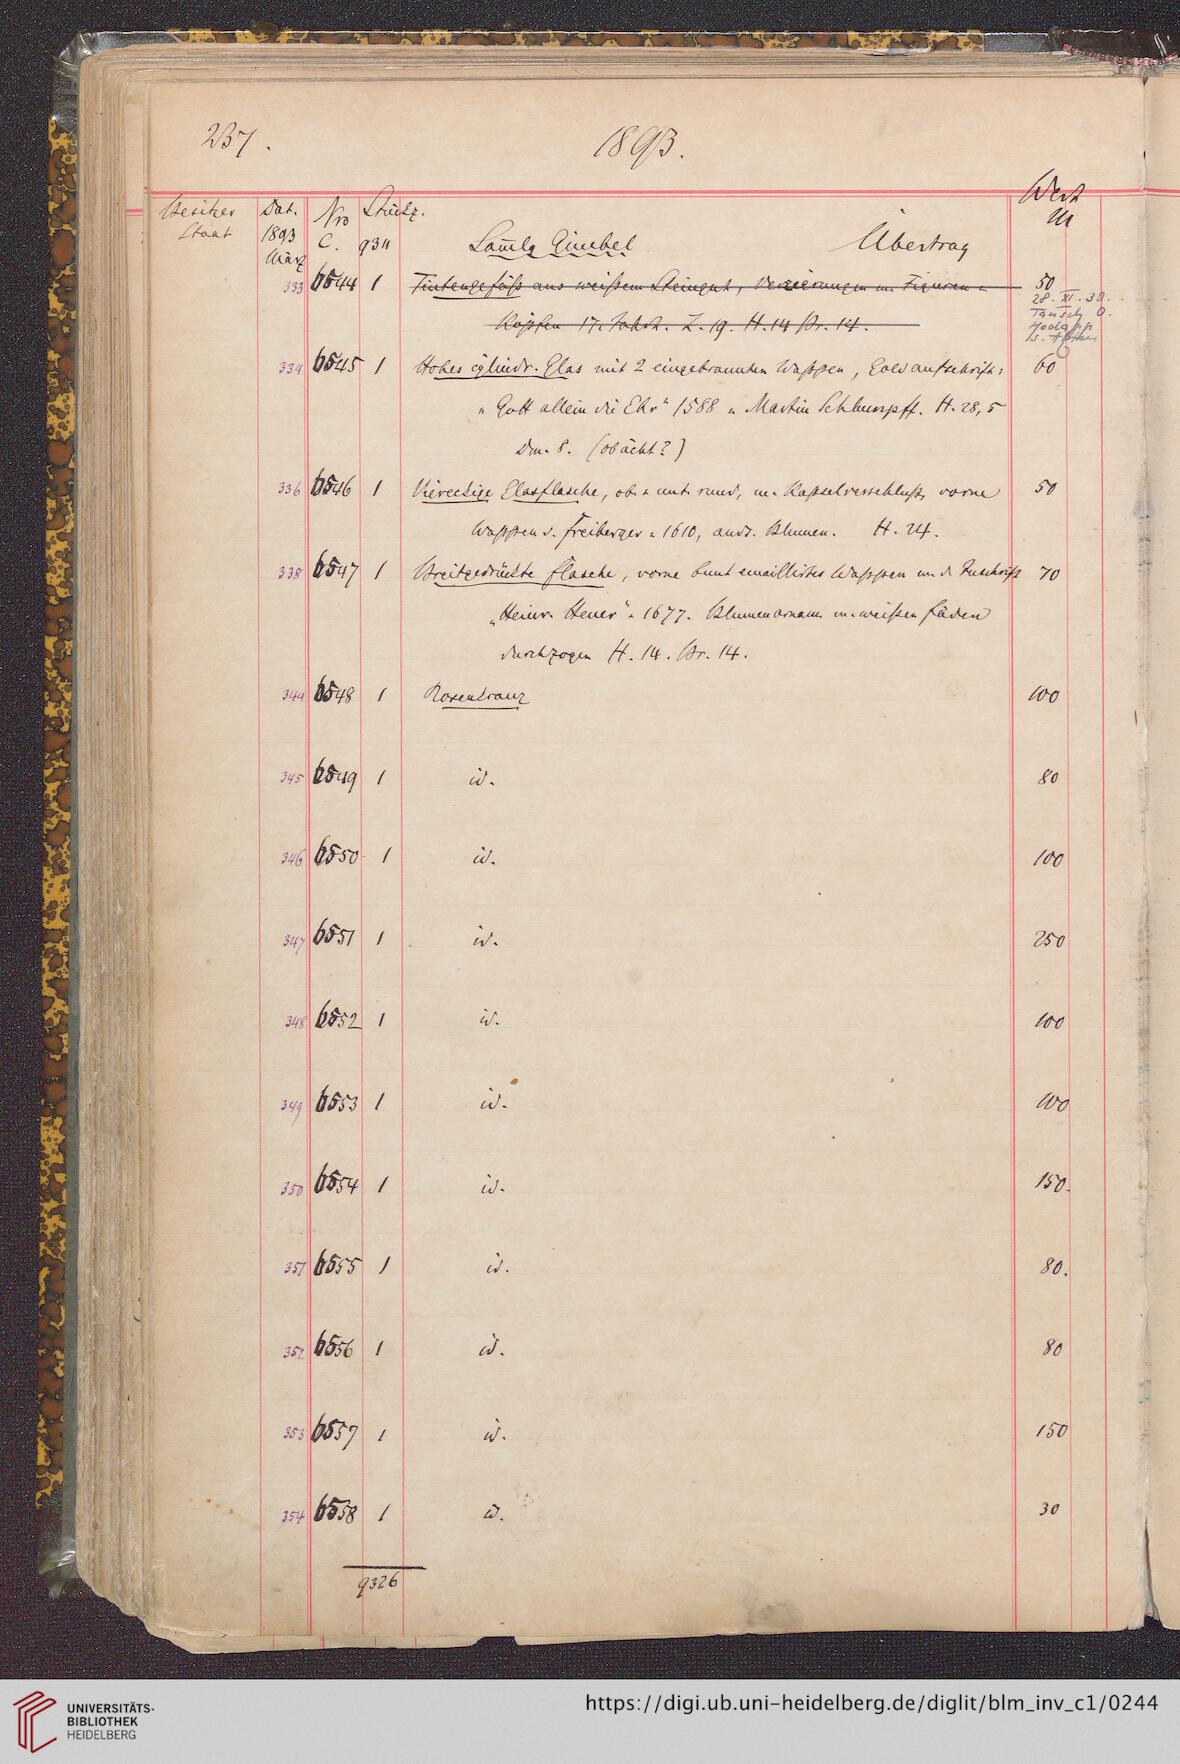 237.
1893.
Besitzer Dat. Nro Stückz. Wert
Staat 1893 C. 9311 Samlg Gimbel Übertrag M
März
333 6544 1 Tintengefäß aus weißem Steingut, Verzierungen m. Figuren u. 50
28. XI. 38.
Tausch
Köpfen 17. Jahrh. L. 19. H. 14 Br. 14.
334 6545 1 Hohes cylindr. Glas mit 2 eingebrannten Wappen, Goldaufschrift: 60
"Gott allein die Ehr" 1588 u. Martin Schlumpff. H. 28,5
Dm. 8. (ob ächt?)
336 6546 1 Viereckige Glasflasche, ob. u. unt. rund, m. Kapselverschluß, vorne 50
Wappen v. Freiberger u. 1610, ands. Blumen. H. 24.
338 6547 1 Breitgedrückte Flasche, vorne bunt emaillirtes Wappen m. d. Inschrift 70
"Heinr. Heuer" u. 1677. Blumenornam. m. weißen Fäden
durchzogen H. 14. Br. 14.
344 6548 1 Rosenkranz 100
345 6549 1 id. 80
346 6550 1 id. 100
347 6551 1 id. 250
348 6552 1 id. 100
349 6553 1 id. 100
350 6554 1 id. 150.
351 6555 1 id. 80.
352 6556 1 id. 80
353 6557 1 id. 150
354 6558 1 id. 30
9326
UNIVERSITÄTS-
BIBLIOTHEK
HEIDELBERG
https://digi.ub.uni-heidelberg.de/diglit/blm_inv_c1/0244